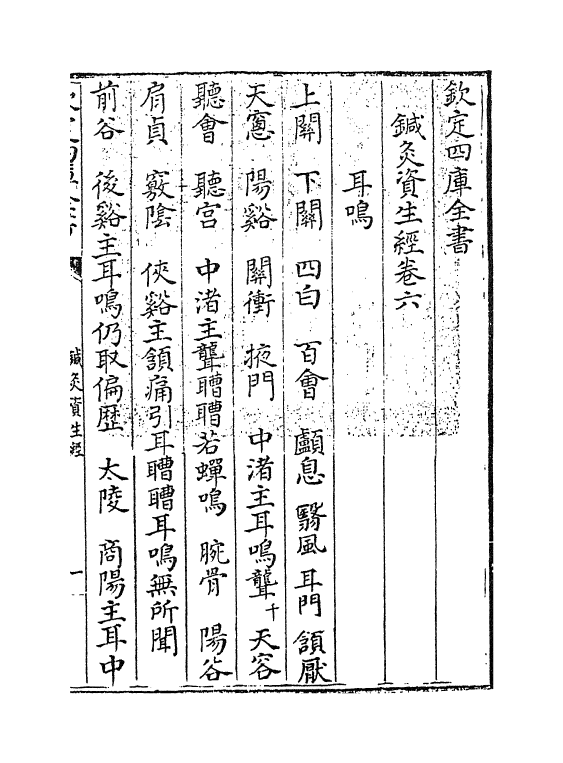 欽定四庫全書
鍼灸資生經卷六
耳鳴
上關 下關 四白 百會 顱息 翳風 耳門 頷厭
天窻 陽谿 關衝 掖門 中渚主耳鳴聾千 天容
聽會 聽宫 中渚主聾𦗖𦗖若蟬鳴 腕骨 陽谷
肩貞 竅陰 俠谿主頷痛引耳𦗖𦗖耳鳴無所聞
前谷 後谿主耳鳴仍取偏歴 太陵 商陽主耳中
鍼灸資生經
一